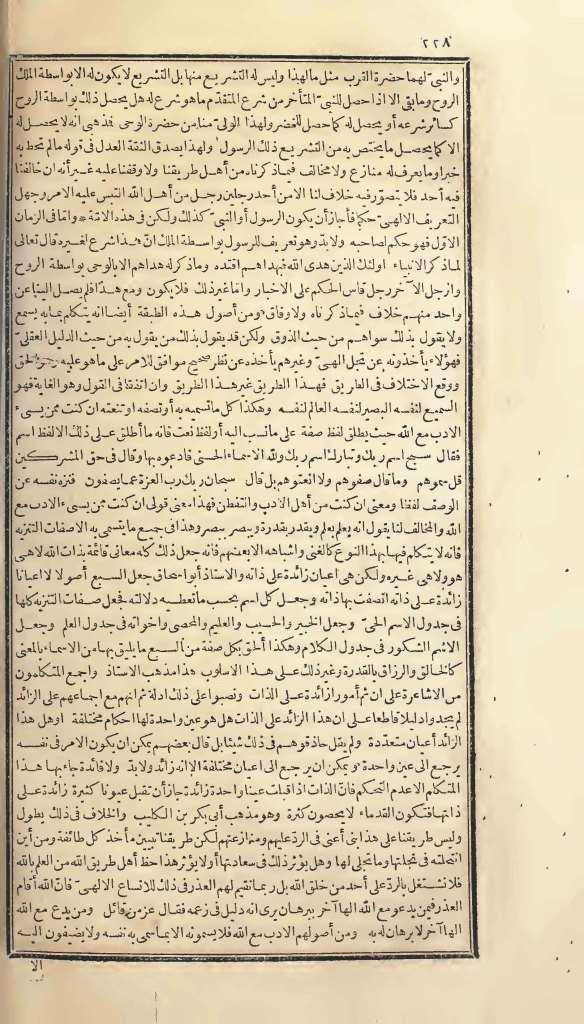 ٢٢٨
والنبي لهما حضرة القرب مثل ما لهذا وليس له التشريع منها بل التشريع لا يكون له الا بواسطة الملك
الروح وما بقي الا اذا حصل للنبي المتأخر من شرع المتقدم ما هو شرع له هل يحصل ذلك بواسطة الروح
كسائر شرعه أو يحصل له كما حصل للخضر ولهذا الولي منا من حضرة الوحي فمذهبي انه لا يحصل له
الا كما يحصل ما يختص به من التشريع ذلك الرسول ولهذا يصدق الثقة العدل في قوله مالم تحط به
خبرا وما يعرف له منازع ولا مخالف فيما ذكرناه من أهل طريقنا ولا وقفنا عليه غير أنه ان خالفنا
فيه أحد فلا يتصور فيه خلاف لنا الا من أحد رجلين رجل من أهل الله التبس عليه الامر وجعل
التعريف الالهي حكما فأجاز أن يكون الرسول أو النبي كذلك ولكن في هذه الامة * وأما في الزمان
الاول فهو حكم لصاحبه ولا بد وهو تعريف للرسول بواسطة الملك ان هذا شرع لغيره قال تعالى
لما ذكر الانبياء أولئك الذين هدى الله فبهداهم اقتده وما ذكر له هداهم الا بالوحي بواسطة الروح
وازجل الآخر رجل قاس الحكم على الاخبار واما غير ذلك فلا يكون ومع هذا فلم يصل الينا عن
واحد منهم خلاف فيما ذكرناه ولا وفاق * ومن أصول هذه الطبقة أيضا انه يتكلم بما به يسمع
ولا يقول بذلك سواهم من حيث الذوق ولكن قد يقول بذلك من يقول به من حيث الدليل العقلي
فهؤلاء يأخذونه عن تجل الهي وغيرهم يأخذه عن نظر صحيح موافق للامر على ما هو عليه وهو الحق
ووقع الاختلاف في الطريق فهذا الطريق غير هذا الطريق وان اتفقنا في القول وهو الغاية فهو
السميع لنفسه البصير لنفسه العالم لنفسه وهكذا كل ما تسميه به أو تصفه أو تنعته ان كنت ممن يسيء
الادب مع الله حيث يطلق لفظ صفة على ما نسب اليه أو لفظ نعت فانه ما أطلق على ذلك الا لفظ اسم
فقال سبح اسم ربك وتبارك اسم ربك ولله الاسماء الحسنى فادعوه بها وقال في حق المشركين
قل سموهم وما قال صفوهم ولا انعتوهم بل قال سبحان ربك رب العزة عما يصفون فنزه نفسه عن
الوصف لفظا ومعنى ان كنت من أهل الادب والتفطن فهذا معنى قولي ان كنت ممن يسيء الادب مع
الله والمخالف لنا يقول انه يعلم بعلم ويقدر بقدرة ويبصر ببصر وهذا في جميع ما يتسمى به الا صفات التنزيه
فانه لا يتكلم فيها بهذا النوع كالغنى واشباهه الا بعضهم فانه جعل ذلك كله معاني قائمة بذات الله لا هي
هو ولا هي غيره ولكن هي أعيان زائدة على ذاته والاستاذ أبو اسحاق جعل السبع أصولا لا اعيانا
زائدة على ذاته اتصفت بها ذاته وجعل كل اسم بحسب ما تعطيه دلالته فجعل صفات التنزيه كلها
في جدول الاسم الحي وجعل الخبير والحسيب والعليم والمحصي واخواته في جدول العلم وجعل
الاسم الشكور في جدول الكلام وهكذا ألحق بكل صفة من السبع ما يليق بها من الاسماء بالمعنى
كالخالق والرزاق بالقدرة وغير ذلك على هذا الاسلوب هذا مذهب الاستاذ وأجمع المتكلمون
من الاشاعرة على ان ثم أمورا زائدة على الذات ونصبوا على ذلك ادلة ثم انهم مع اجماعهم على الزائد
لم يجدوا دليلا قاطعا على ان هذا الزائد على الذات هل هو عين واحدة لها احكام مختلفة أو هل هذا
الزائد أعيان متعددة ولم يقل حاذقوهم في ذلك شيئا بل قال بعضهم يمكن ان يكون الامر في نفسه
يرجع الى عين واحدة ويمكن ان يرجع الى اعيان مختلفة الا انه زائد ولابد ولا فائدة جاء بها هذا
المتكلم الا عدم التحكم فان الذات اذا قبلت عينا واحدة زائدة جاز أن تقبل عيونا كثيرة زائدة على
ذاتها فتكون القدماء لا يحصون كثرة وهو مذهب أبي بكر بن الكليب والخلاف في ذلك يطول
وليس طريقنا على هذا بني أعني في الرد عليهم ومنازعتهم لكن طريقنا تبيين مآخذ كل طائفة ومن أين
انتحلته في نحلتها وما تجلى لها وهل يؤثر ذلك في سعادتها أو لا يؤثر هذا حظ أهل طريق الله من العلم بالله
فلا نشتغل بالرد على أحد من خلق الله بل ربما نقيم لهم العذر في ذلك للاتساع الالهي فان الله أقام
العذر فيمن يدعو مع الله الها آخر ببرهان يرى انه دليل في زعمه فقال عز من قائل ومن يدع مع الله
الها آخر لا برهان له به ومن أصولهم الادب مع الله فلا يسمونه الا بما سمى به نفسه ولا يضيفون اليه
الا